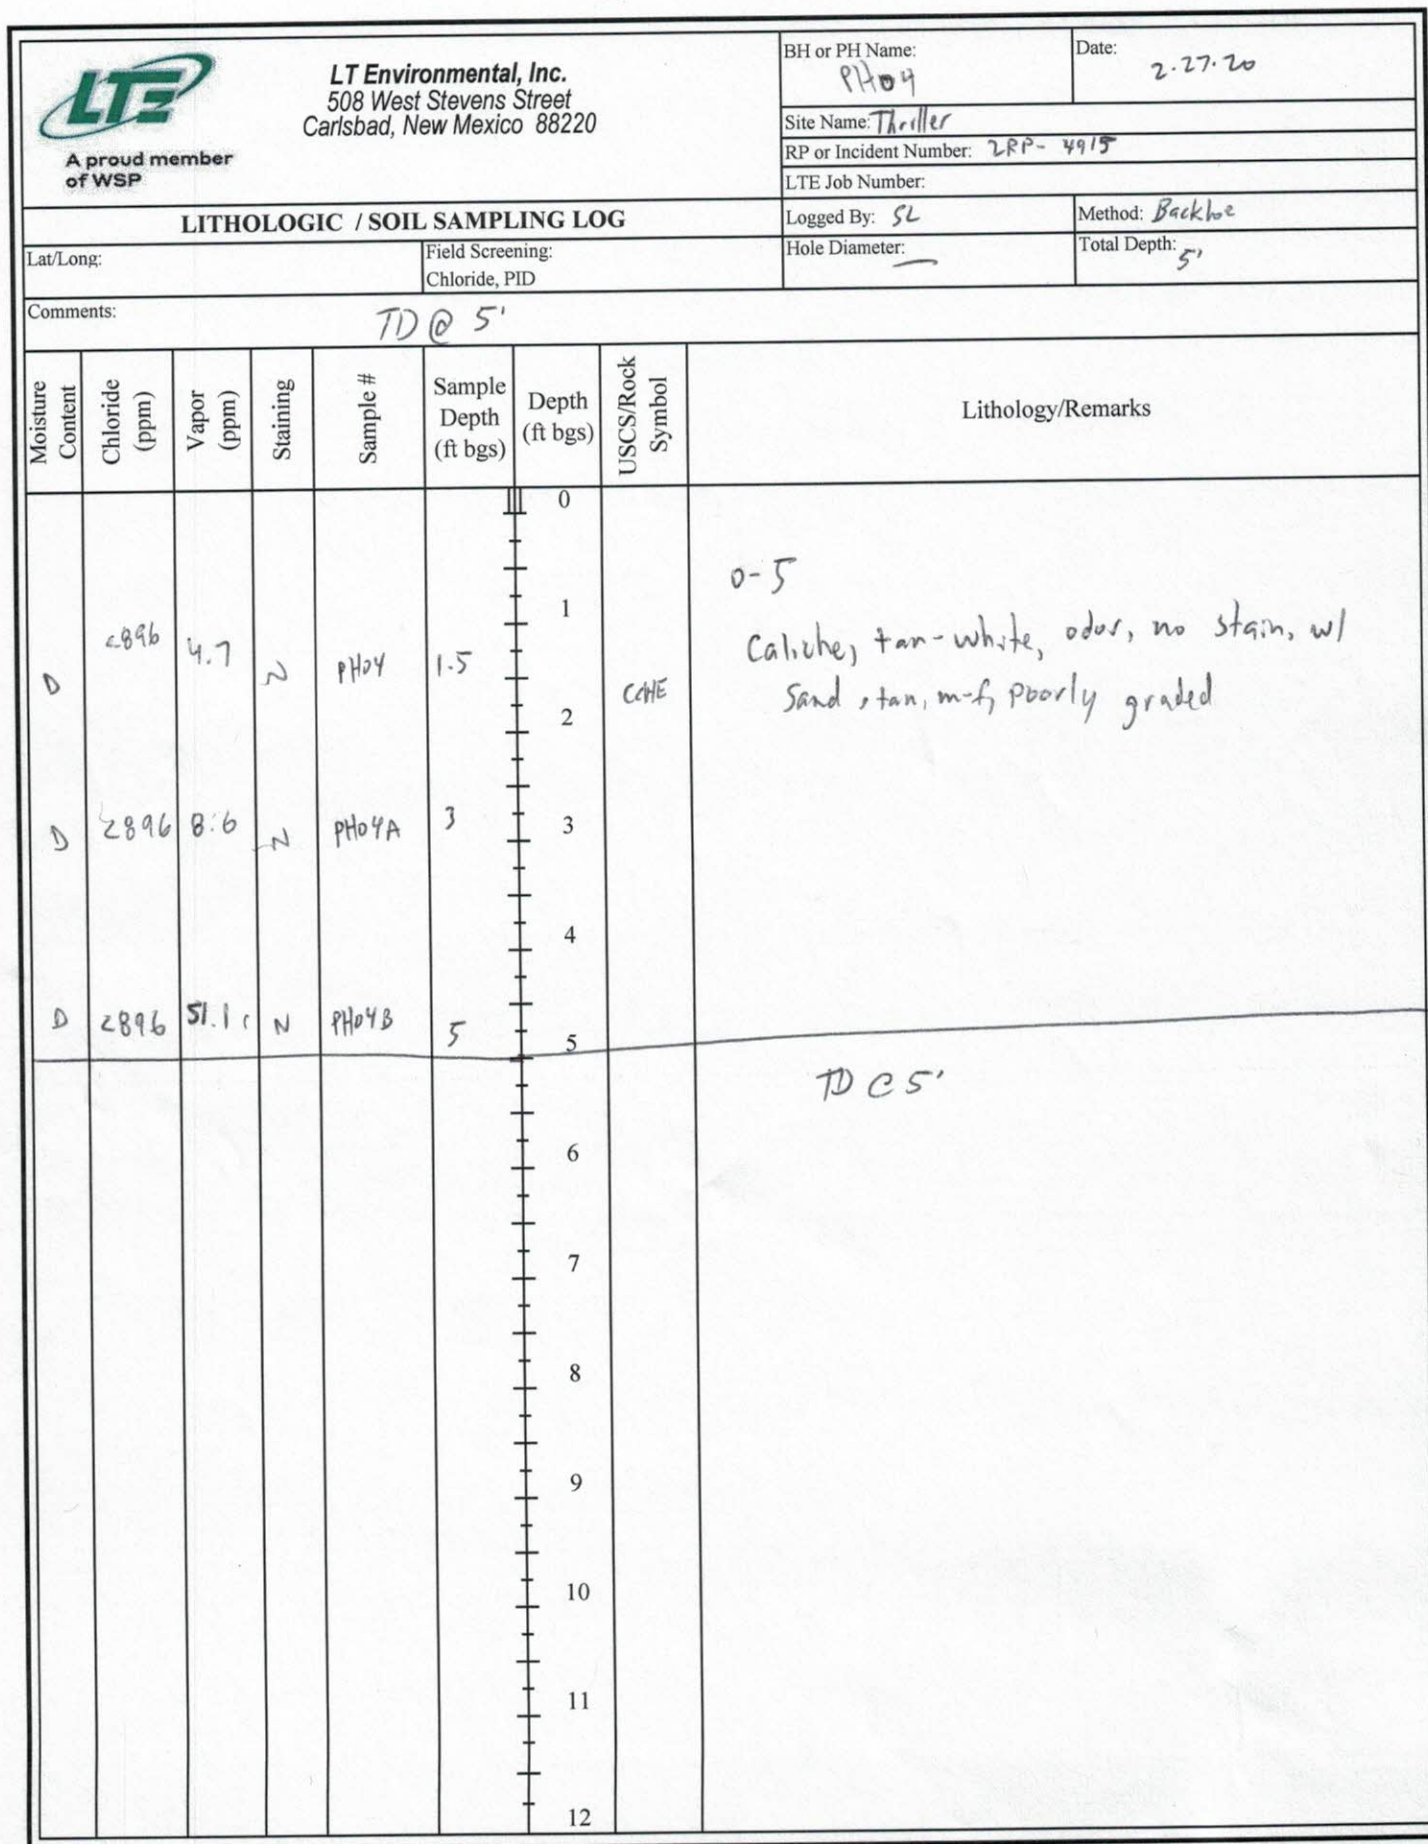 LTE
A proud member
of WSP
LT Environmental, Inc.
508 West Stevens Street
Carlsbad, New Mexico 88220
BH or PH Name: PH04
Date: 2.27.20
Site Name: Thriller
RP or Incident Number: 2RP-4915
LTE Job Number:
LITHOLOGIC / SOIL SAMPLING LOG
Logged By: SL
Method: Backhoe
Lat/Long:
Field Screening:
Chloride, PID
Hole Diameter: —
Total Depth: 5'
Comments: TD @ 5'
Moisture Content
Chloride (ppm)
Vapor (ppm)
Staining
Sample #
Sample Depth (ft bgs)
Depth (ft bgs)
USCS/Rock Symbol
Lithology/Remarks
0
0-5
1
Caliche, tan-white, odor, no stain, w/
D <896 4.7 N PH04 1.5
CCHE
sand, tan, m-f, poorly graded
2
D <896 8.6 N PH04A 3
3
4
D <896 51.1 N PH04B 5
5
TD @ 5'
6
7
8
9
10
11
12